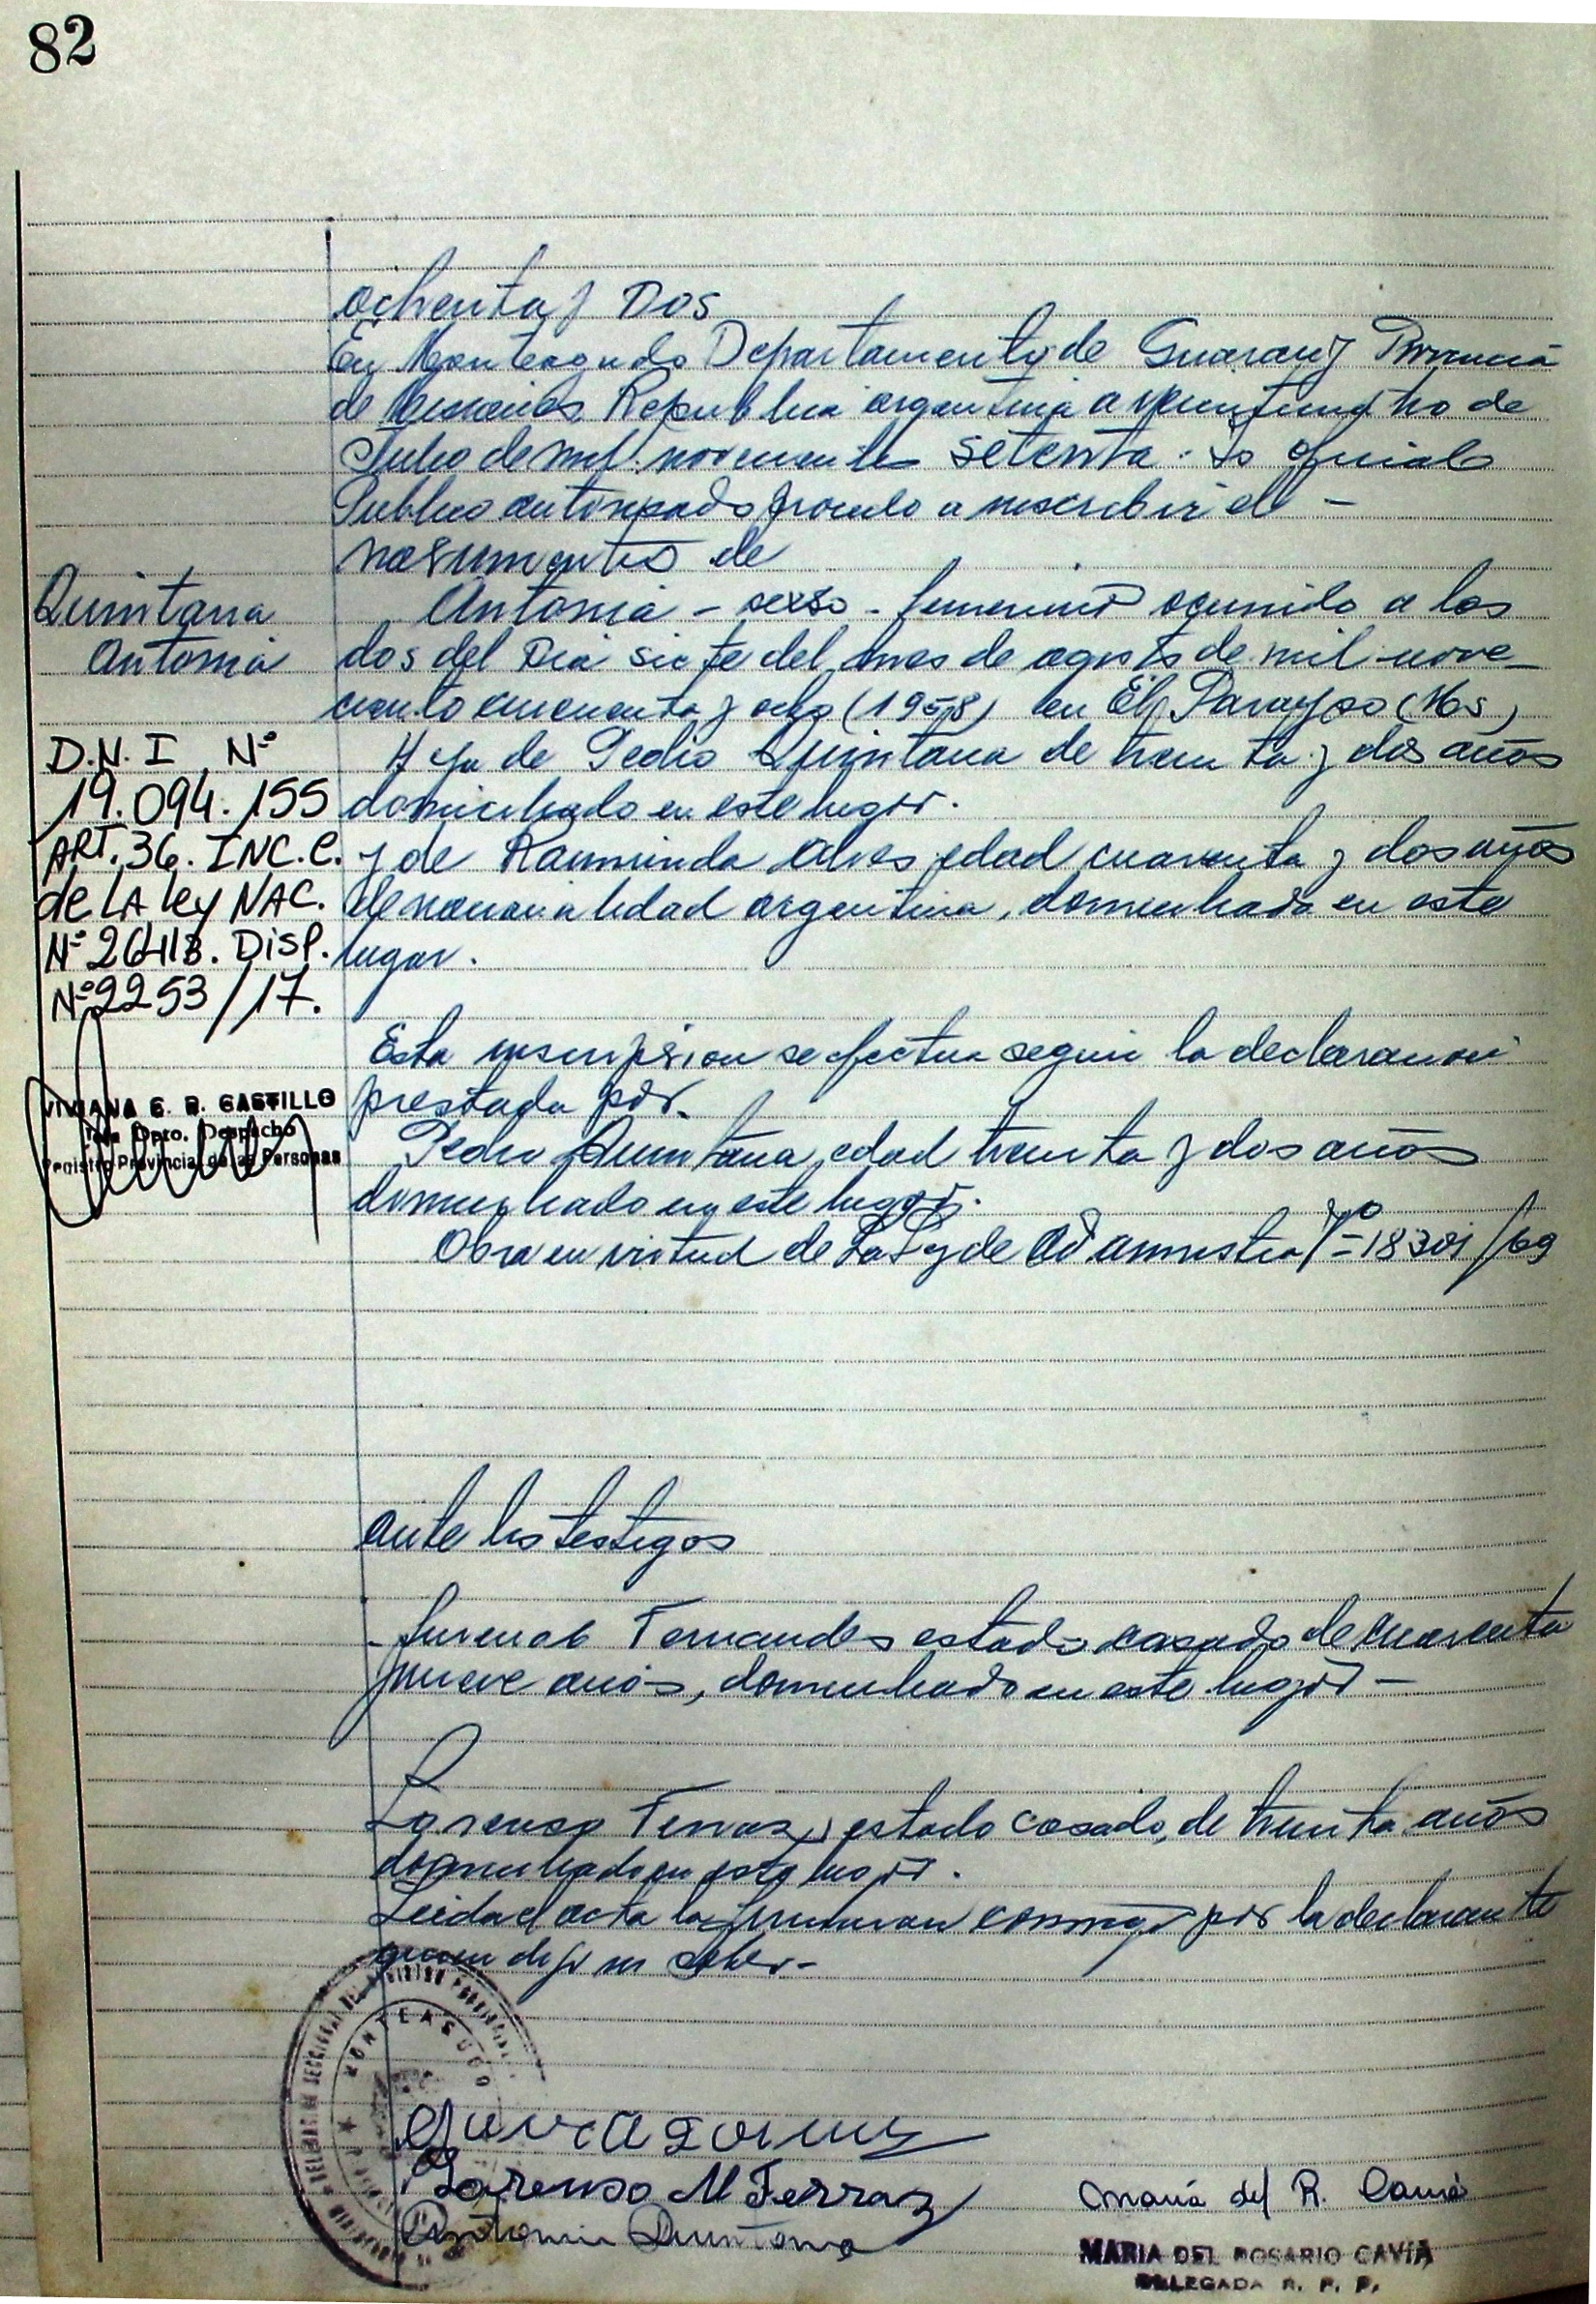 82
ochenta y Dos
En Monteagudo Departamento de Guarany Provincia
de Misiones Republica argentina a veintiuocho de
Julio de mil novecientos setenta. Yo oficial
Publico autorizado procedo a inscribir el -
nasimiento de
Quintana
Antonia
Antonia - sexso - femenino ocurrido a las
dos del Dia siete del mes de agosto de mil nove-
ciento cincuenta y ocho (1958) en El Parayso (Ms)
Hija de Pedro Quintana de treinta y dos años
domiciliado en este lugar.
y de Raimunda Alves edad cuarenta y dos años
de nacionalidad argentina, domiciliada en este
lugar.
D.N.I. Nº
19.094.155
ART. 36. INC. C.
de LA ley NAC.
Nº 26413. DISP.
Nº 2253/17.
VIVIANA E. R. CASTILLO
Dpto. Despacho
Registro Provincial de las Personas
Esta inscripsion se efectua segun la declaracion
prestada por.
Pedro Quintana, edad treinta y dos años
domiciliado en este lugar.
Obra en virtud de La Ley de amnistia Nº 18301/69
ante los testigos
- Juvenal Fernandes estado casado de cuarenta
y nueve años, domiciliado en este lugar -
Lorenso Ferraz, estado casado, de treinta años
domiciliado en este lugar.
Leida el acta la firman conmigo por la declarante
quien dijo no saber.-
MONTEAGUDO
Lorenso M Ferraz
Antonia Quintana
Maria del R. Cavia
MARIA DEL ROSARIO CAVIA
DELEGADA R. P. P.